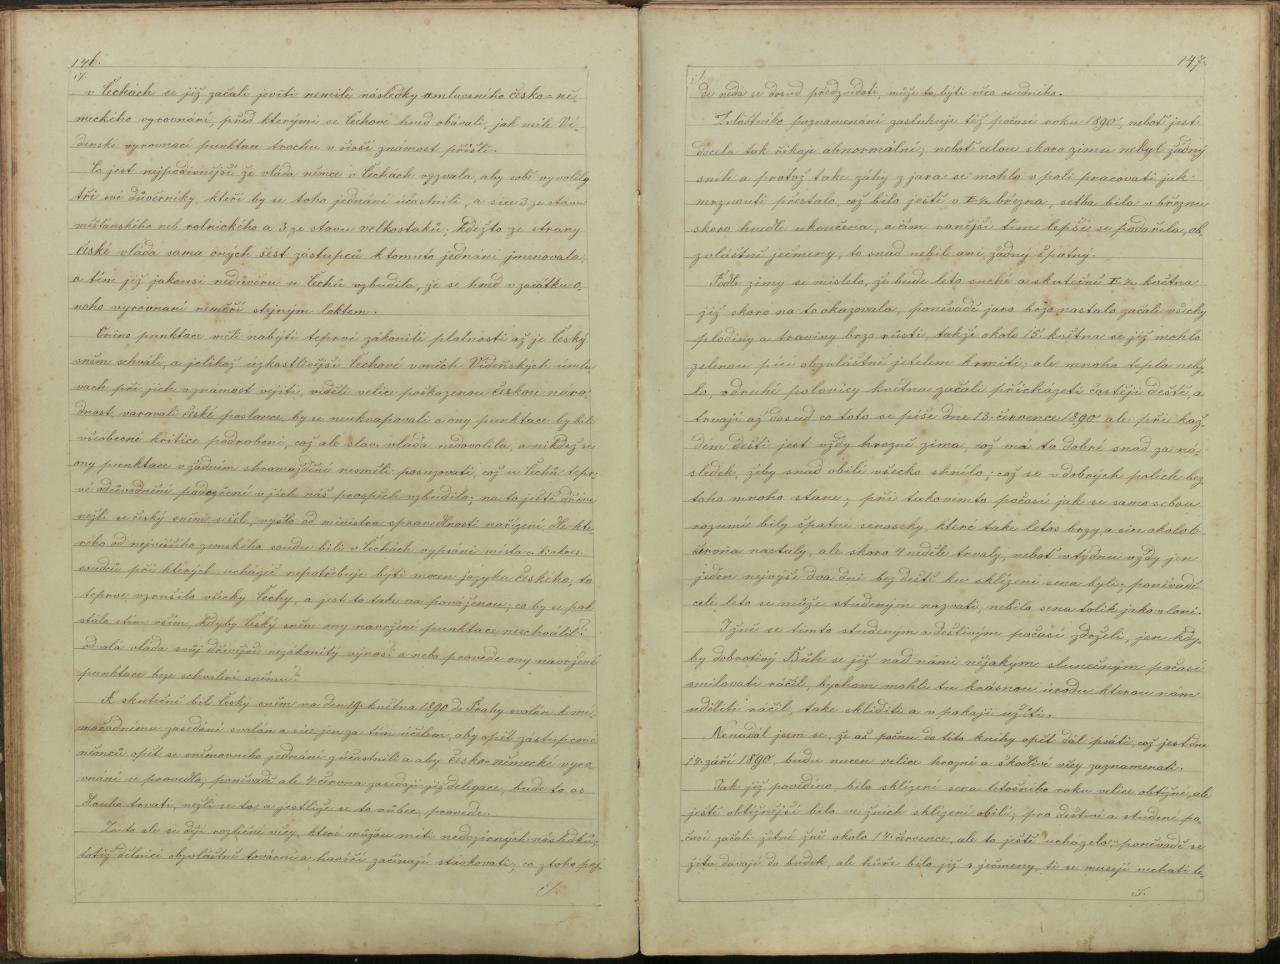 146.
v Čechách se již začali jeviti nemilé následky umluveného česko-ně-
meckého vyrovnání, před kterými se Čechové hned obávali, jak milé Ví-
denské vyrovnací punktace trochu v širší známost přišli.
Co jest nejpodivnější že vláda němce v Čechách vyzvala, aby sobě vyvolily
tři své důvěrníky, kteří by se toho jednání účastnili, a sice 3 ze stavu
měšťanského neb rolnického a 3 ze stavu velkostatků; kdežto ze strany
české vláda sama oných šest zástupců k tomuto jednání jmenovala,
a tím již jakousi nedůvěru u Čechů vzbudila, že se hned v začátku o-
noho vyrovnání neměří stejným loktem.
Onino punktace měli nabýti teprvé zákonité platnosti až je Český
sněm schválí, a jelikož úzkostlivější Čechové v oněch Vídeňských úmlu-
vách, při jich v známost vejití, viděli velice poškozenou českou náro-
dnost, varovali české poslance, by se neukvapovali a ony punktace by byli
všeobecné kritice podrobeni, což ale slav. vláda nedovolila, a nikdež se
ony punktace v žádném shromáždění nesměli posuzovati, což u Čechů tepr-
vé odůvodnění podezření v jich náš prospěch vzbudilo; na to ještě dříve
nežli se český sněm sešel, vyšlo od ministra spravedlnosti nařízení, dle kte-
rého od nejvyššího zemského soudu bili v Čechách vypsáni místa
soudců při kterých uchazeč nepotřebuje býti mocen jazyka českého; to
teprve vzrušilo všecky Čechy, a jest to také na pováženou; co by se pak
stalo s tím vším, kdyby Český sněm ony navržení punktace neschválil?
odvolá vláda svůj dřívější nezákonitý výnos? a nebo provede ony navržené
punktace beze schválení sněmu?
A skutečně bil Český sněm na den 19. května 1890 do Prahy svolán k mi-
mořádnému zasedání svolán a sice jen za tím účelem, aby opět zástupcové
němců opět se sněmovního jednání zúčastnili a aby česko-německé vyro-
vnání se provedlo; poněvadž ale 4. června zasedají již delegace, bude to as
dlouho trvati, nežli se to, a jestliže se to vůbec, provede.
Za to ale se dějí rozličné věcy, které můžou míti nedozírných následků;
totiž dělníci obzvláštně tovární a havíři začínají stávkovati; co z toho poj-
147.
de nedá se dosud předzvídati, může to býti věco osudného.
Zvláštního poznamenání zasluhuje též počasí roku 1890, neboť jest
docela tak říkaje abnormální; neboť celou skoro zimu nebyl žádný
sníh a protož také záhy z jara se mohlo v poli pracovati jak-
mrznouti přestalo, což bilo ještě v I½ března, setba bila v březnu
skoro hnedle ukončena, a čím ranější tím lepší se podařila, ob-
zvláštní ječmeny, to snad nebil ani žádný špatný.
Podle zimy se mislelo, že bude léto suché a skutečně I½ května
již skoro na to okazovala, poněvadž jaro brzo nastalo začali všecky
plodiny a traviny brzo růsti, takže okolo 15. května se již mohlo
zelenou pící obzvláštně jetelem krmiti; ale mnoho tepla neby-
lo, z druhé polovicy května začali přicházeti častěji deště, a
trvají až dosud co toto se píše dne 13. července 1890 ale při kaž-
dém dešti jest vždy hrozně zima, což má to dobré snad za ná-
sledek, žeby snad obilí všecko shnilo; což se v dobrých polích bez
toho mnoho stane; při takovémto počasí jak se samo sebou
rozumí bily špatné senoseky, které také letos brzy, a sice okolo 6.
června nastaly, ale skoro 4 neděle trvaly, neboť v týdnu vždy jen
jeden nejvýše dva dni bez deští ku sklizení sena byli; poněvadž
celé léto se může studeným nazvati, nebilo sena tolik jako vloni.
I žně se tímto studeným a deštivým počasí zdrželi, jen kdy-
by dobrotivý Bůh se již nad námi nějakým slunečným počasí
smilovati ráčil, bychom mohli tu krásnou úrodu kterou nám
uděliti ráčil, také skliditi a v pokoji užíti.
Nenadál jsem se, že až počnu do této knihy opět dál psáti, což jest dne
14. září 1890, budu nucen velice hrozné a škodlivé věcy zaznamenati.
Jak již povídíno, bilo sklizení sena letošního roku velice obtížné, ale
ještě obtížnější bilo ve žních sklizení obilí; pro deštivé a studené po-
časí začali žitné žně okolo 14. července, ale to ještě ucházelo; poněvadž se
žito dávají do budek, ale hůře bilo již s ječmeny, ti se musejí nechati le-